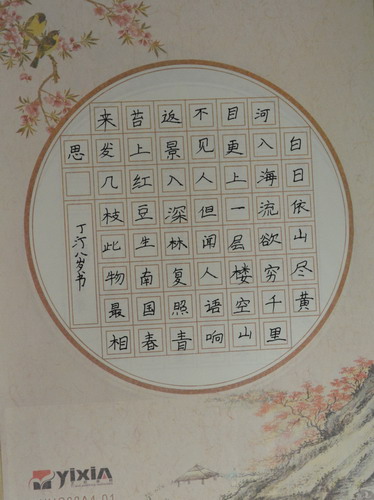 白日依山尽黄
河入海流欲穷千里
目更上一层楼空山
不见人但闻人语响
返景入深林复照青
苔上红豆生南国春
来发几枝此物最相
思
丁汀八岁书
YIXIA